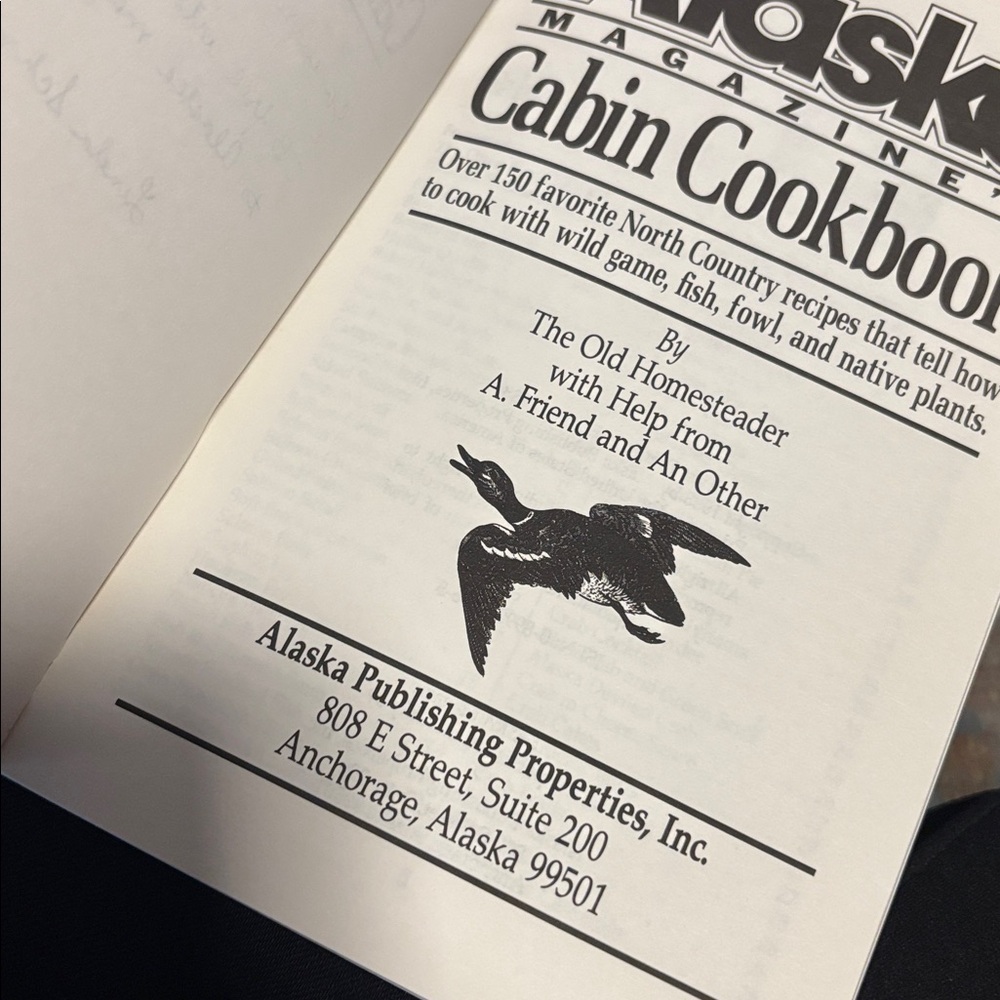 Alaska
MAGAZINE'
Cabin Cookboo
Over 150 favorite North Country recipes that tell how
to cook with wild game, fish, fowl, and native plants.
By
The Old Homesteader
with Help from
A. Friend and An Other
Alaska Publishing Properties, Inc.
808 E Street, Suite 200
Anchorage, Alaska 99501